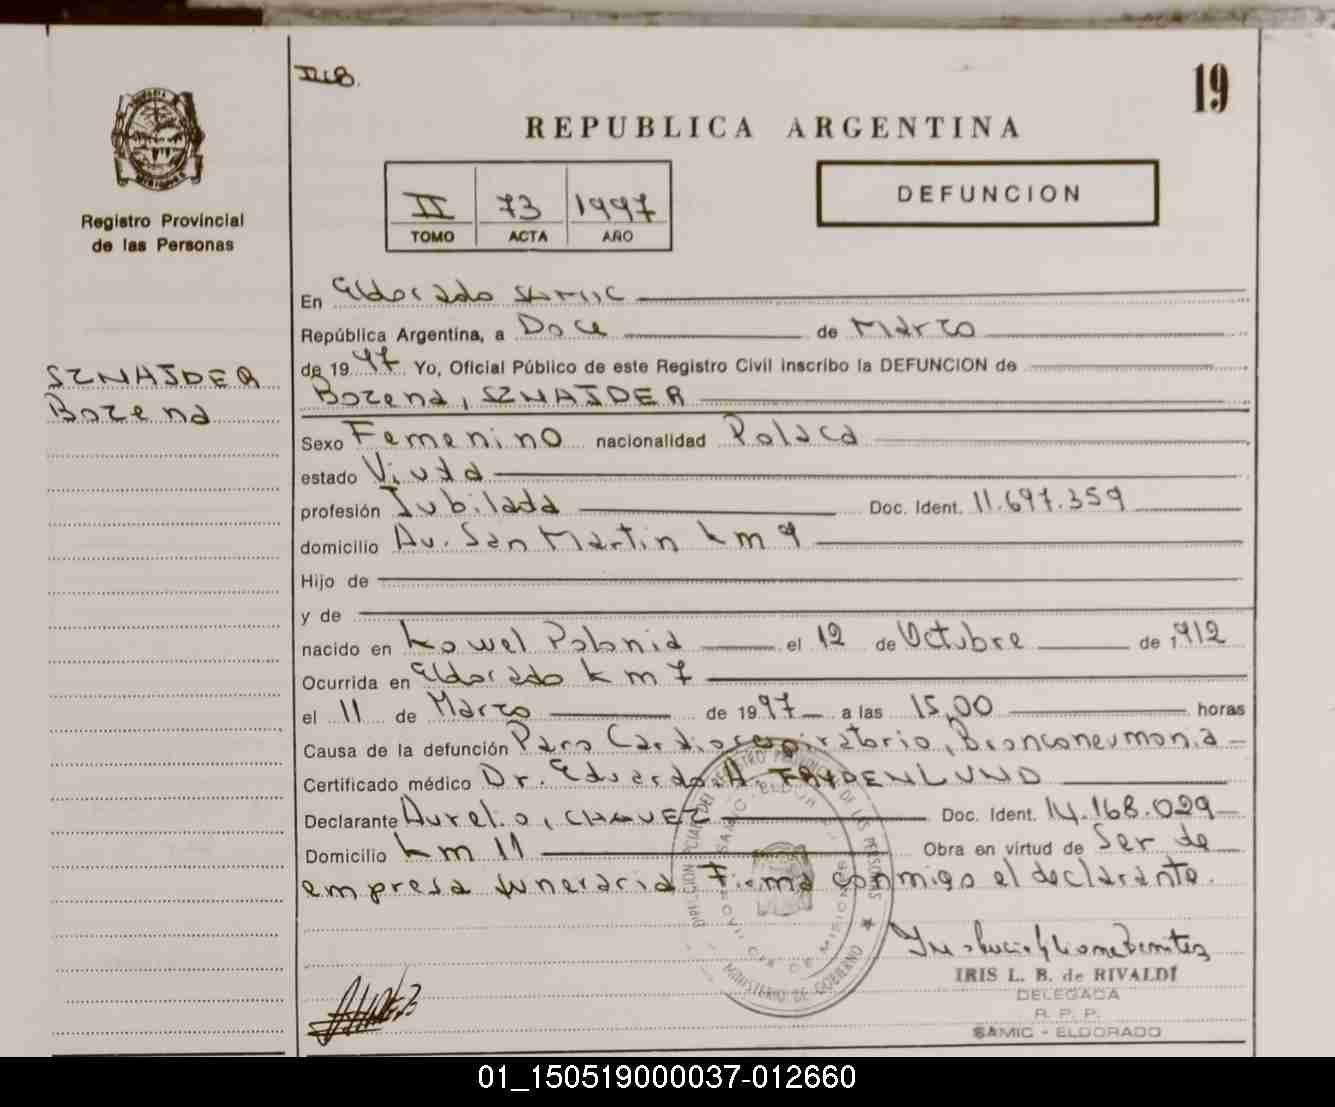 19
REPUBLICA ARGENTINA
II 73 1997
TOMO ACTA AÑO
DEFUNCION
MISIONES
Registro Provincial
de las Personas
SZNAJDER
Bozena
En Eldorado SAMIC
República Argentina, a Doce de Marzo
de 1997 Yo, Oficial Público de este Registro Civil inscribo la DEFUNCION de
Bozena, SZNAJDER
Sexo Femenino nacionalidad Polaca
estado Viuda
profesión Jubilada Doc. Ident. 11.697.359
domicilio Av. San Martin km 9
Hijo de
y de
nacido en Kowel Polonia el 12 de Octubre de 1912
Ocurrida en Eldorado km 7
el 11 de Marzo de 1997 a las 15,00 horas
Causa de la defunción Paro Cardiorespiratorio, Bronconeumonia
Certificado médico Dr. Eduardo A. FRYDENLUND
Declarante Aurelio, CHAVEZ Doc. Ident. 14.168.029
Domicilio km 11 Obra en virtud de Ser de
empresa funeraria Firma conmigo el declarante.
DIRECCION REGISTRO PROVINCIAL DE LAS PERSONAS
MINISTERIO DE GOBIERNO
IRIS L. B. de RIVALDI
DELEGADA
R. P. P.
SAMIC - ELDORADO
01_150519000037-012660